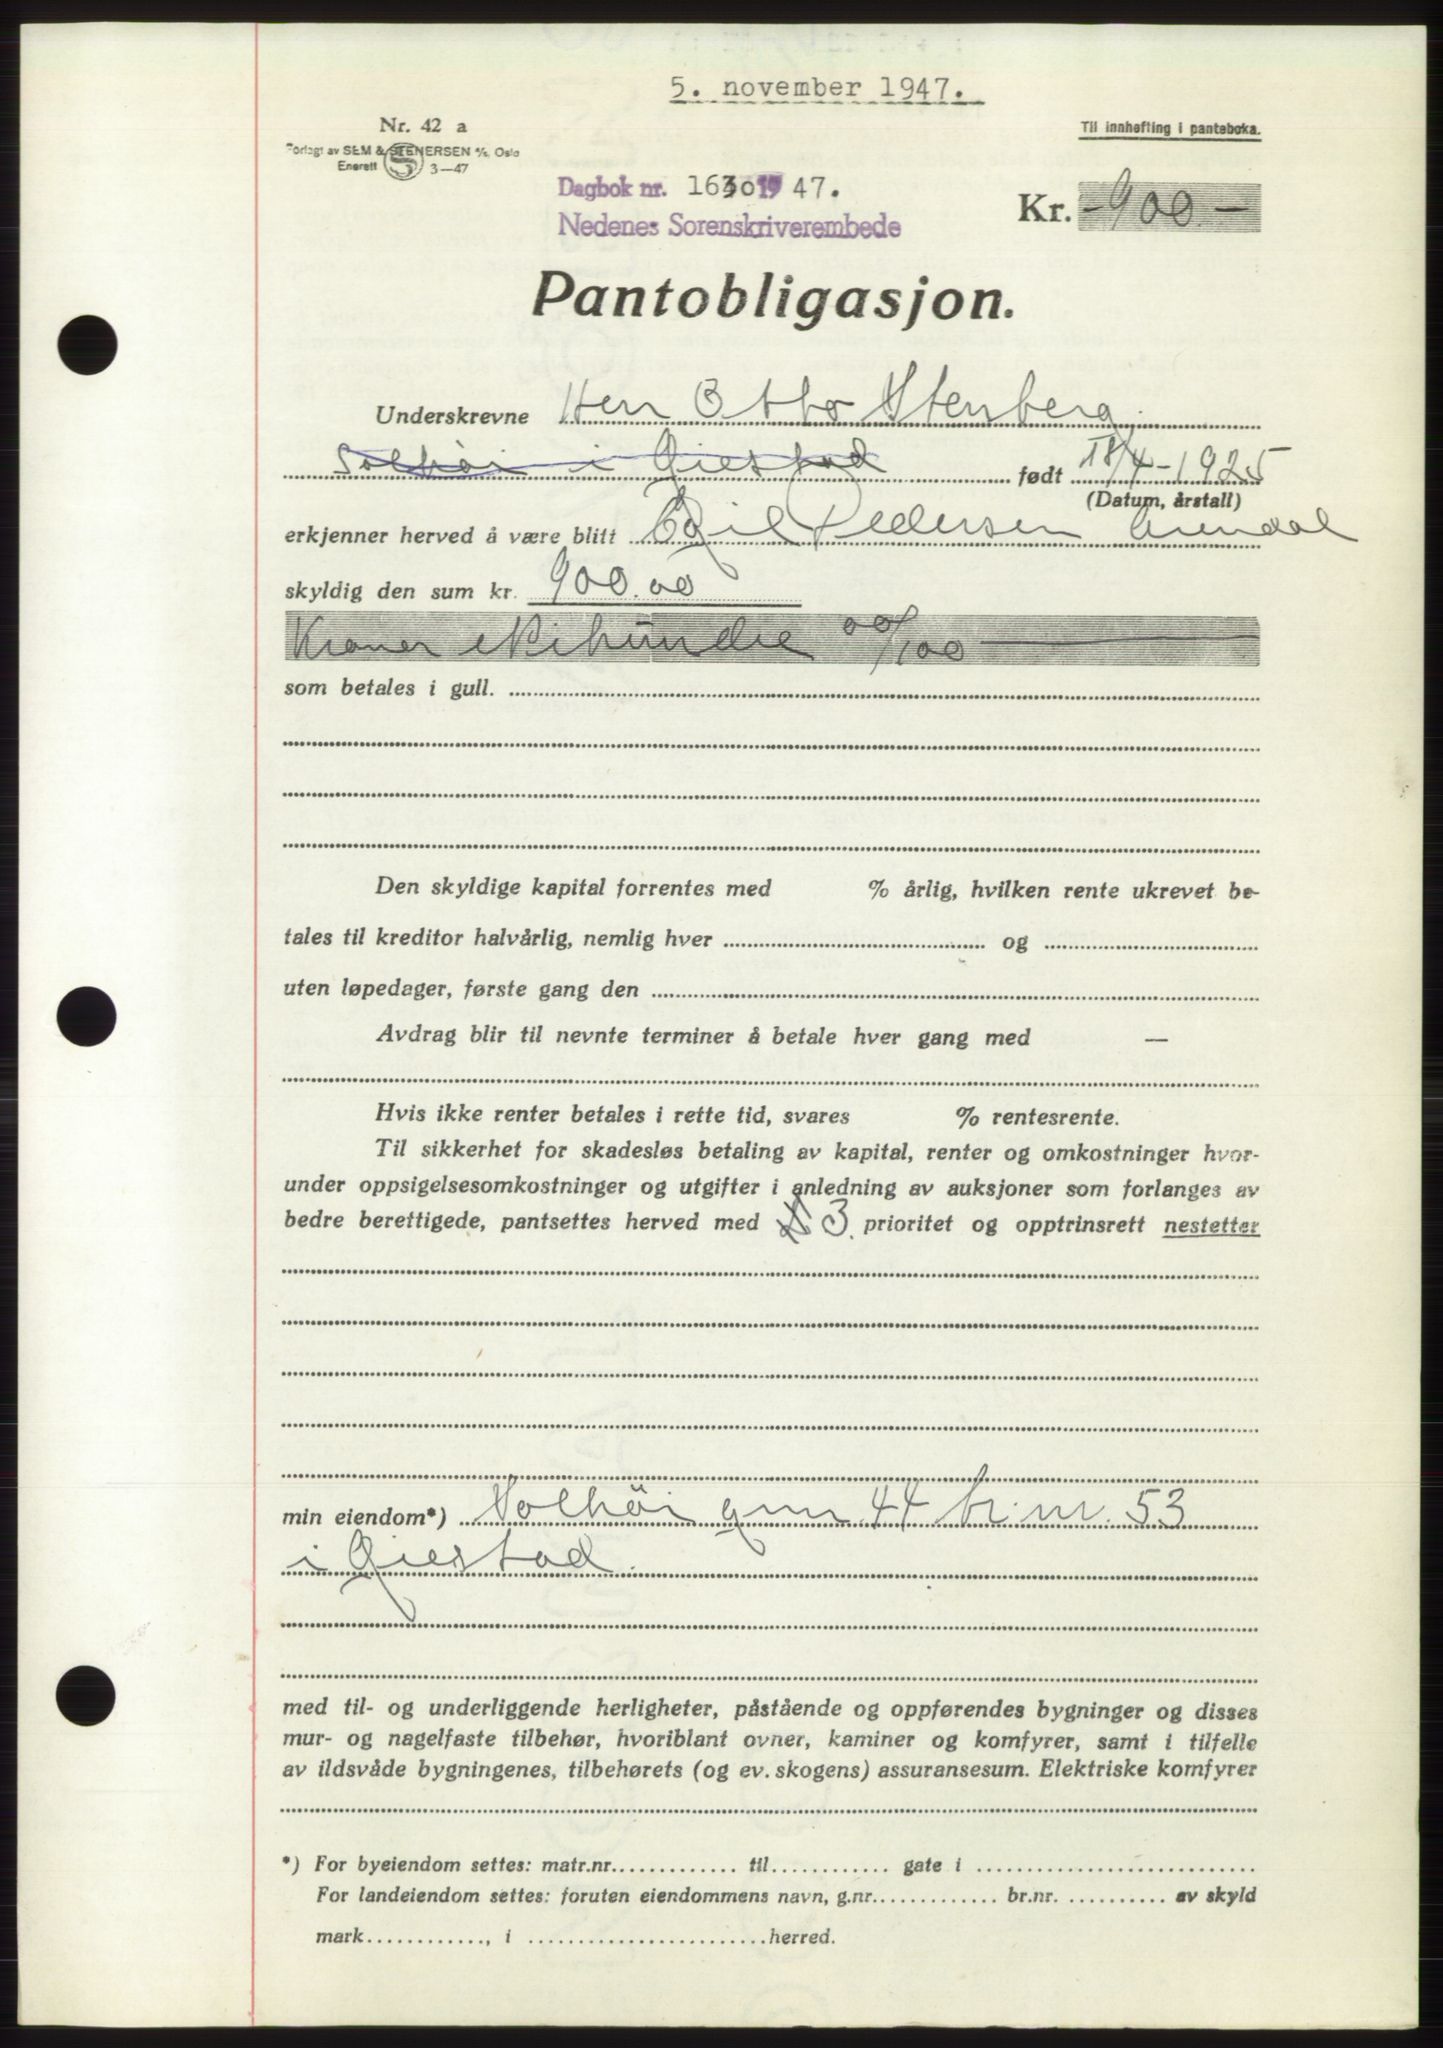 5. november 1947.
Nr. 42 a
Til innhefting i panteboka.
Forlagt av SEM & STENERSEN A/S. Oslo
Enerett S 3-47
Dagbok nr. 1630 1947.
Kr. - 900 -
Nedenes Sorenskriverembede
Pantobligasjon.
Underskrevne Herr Otto Stensberg
Solhøi i Gjestad født 18/4-1925
(Datum, årstall)
erkjenner herved å være blitt Egil Pedersen Arendal
skyldig den sum kr. 900.00
Kroner nihundre 00/100
som betales i gull.
Den skyldige kapital forrentes med % årlig, hvilken rente ukrevet be-
tales til kreditor halvårlig, nemlig hver og
uten løpedager, første gang den
Avdrag blir til nevnte terminer å betale hver gang med —
Hvis ikke renter betales i rette tid, svares % rentesrente.
Til sikkerhet for skadesløs betaling av kapital, renter og omkostninger hvor-
under oppsigelsesomkostninger og utgifter i anledning av auksjoner som forlanges av
bedre berettigede, pantsettes herved med 3. prioritet og opptrinsrett nestetter
min eiendom*) Solhöi gnr 44 br.nr. 53
i Gjestad.
med til- og underliggende herligheter, påstående og oppførendes bygninger og disses
mur- og nagelfaste tilbehør, hvoriblant ovner, kaminer og komfyrer, samt i tilfelle
av ildsvåde bygningenes, tilbehørets (og ev. skogens) assuransesum. Elektriske komfyrer
*) For byeiendom settes: matr.nr. til gate i
For landeiendom settes: foruten eiendommens navn, g.nr. br.nr. av skyld
mark , i herred.